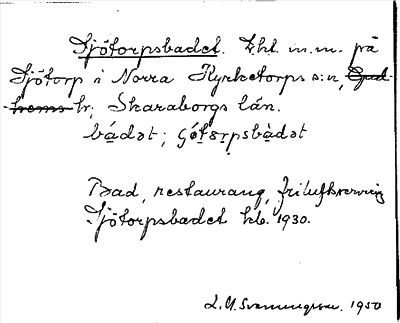 Sjötorpsbadet. Lht m.m. på
Sjötorp i Norra Kyrketorps s:n, Gud-
hems hr; Skaraborgs län.
bádət; ʃø̀tɔrpsbàdət
Bad, restaurang, friluftsservering
Sjötorpsbadet hb. 1930.
1950